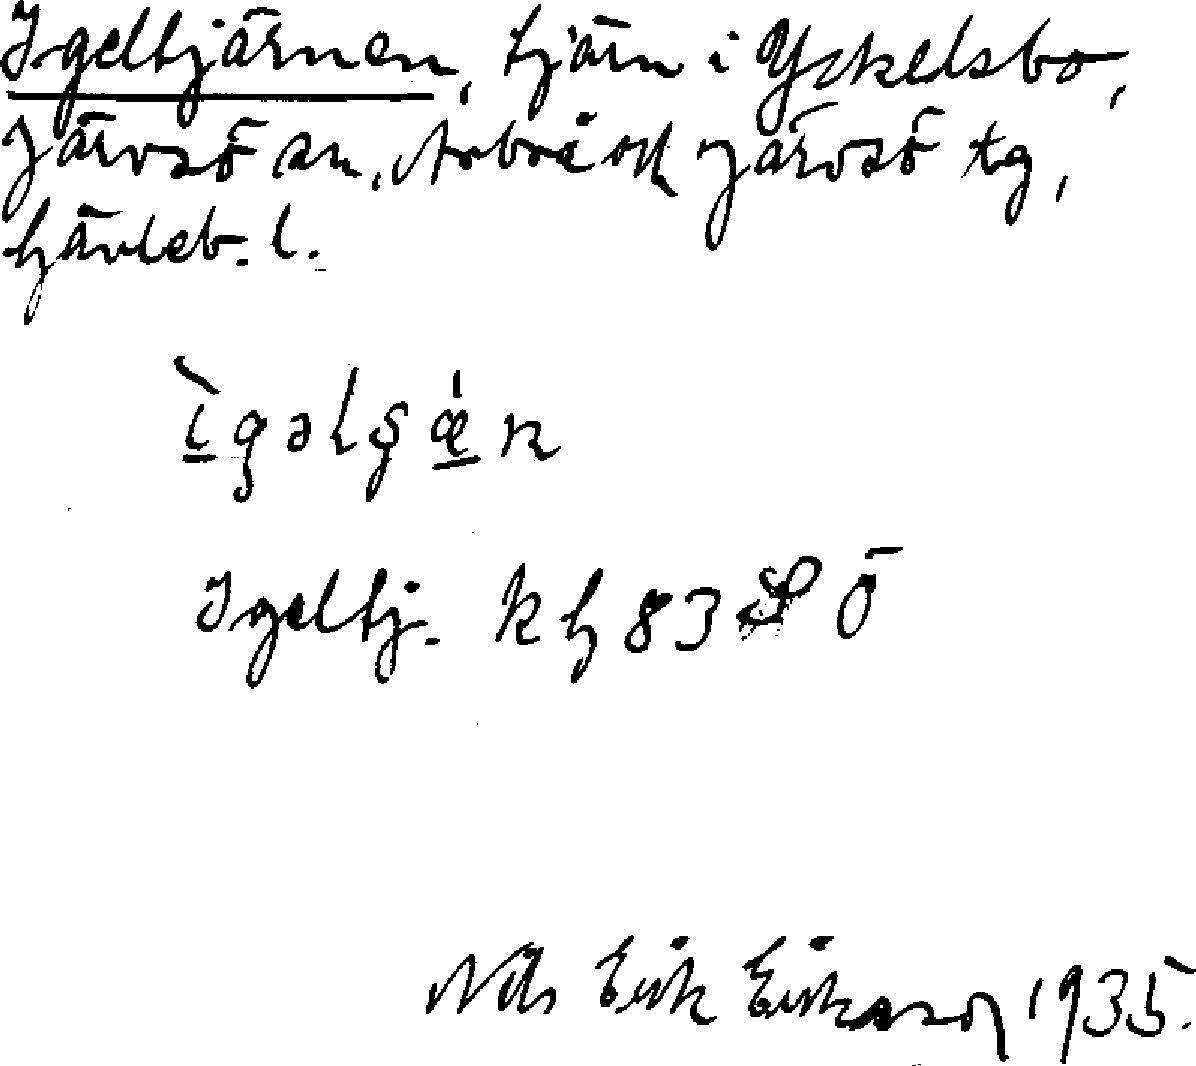 Igeltjärnen, tjärn i Yckelsbo,
Järvsö sn, Arbrå och Järvsö tg,
Gävleb. l.
ìgəlşǽn
Igeltj. k G 83 Ö
Nils Erik Eriksson 1935.